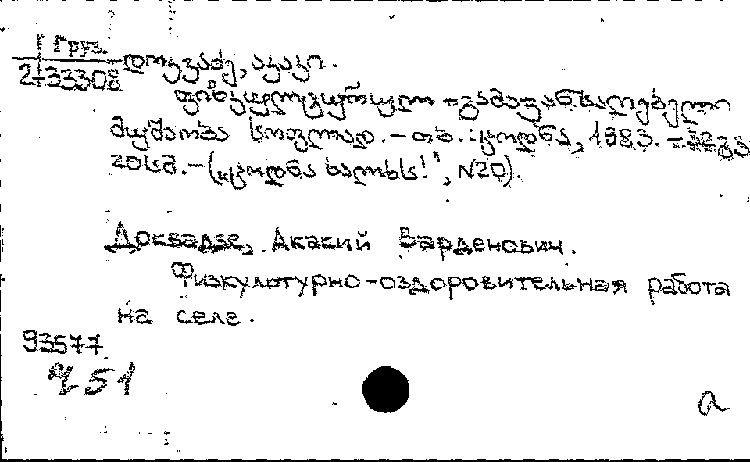 Груз.
2-33308
დოკვაძე, აკაკი.
ფიზკულტურულ-გამაჯანსაღებელი
მუშაობა სოფლად. - თბ.: ცოდნა, 1983. - 32გვ
20სმ. - („ცოდნა ხალხს!", N20).
Доквадзе, Акакий Варденович.
Физкультурно-оздоровительная работа
на селе.
93577
951
a